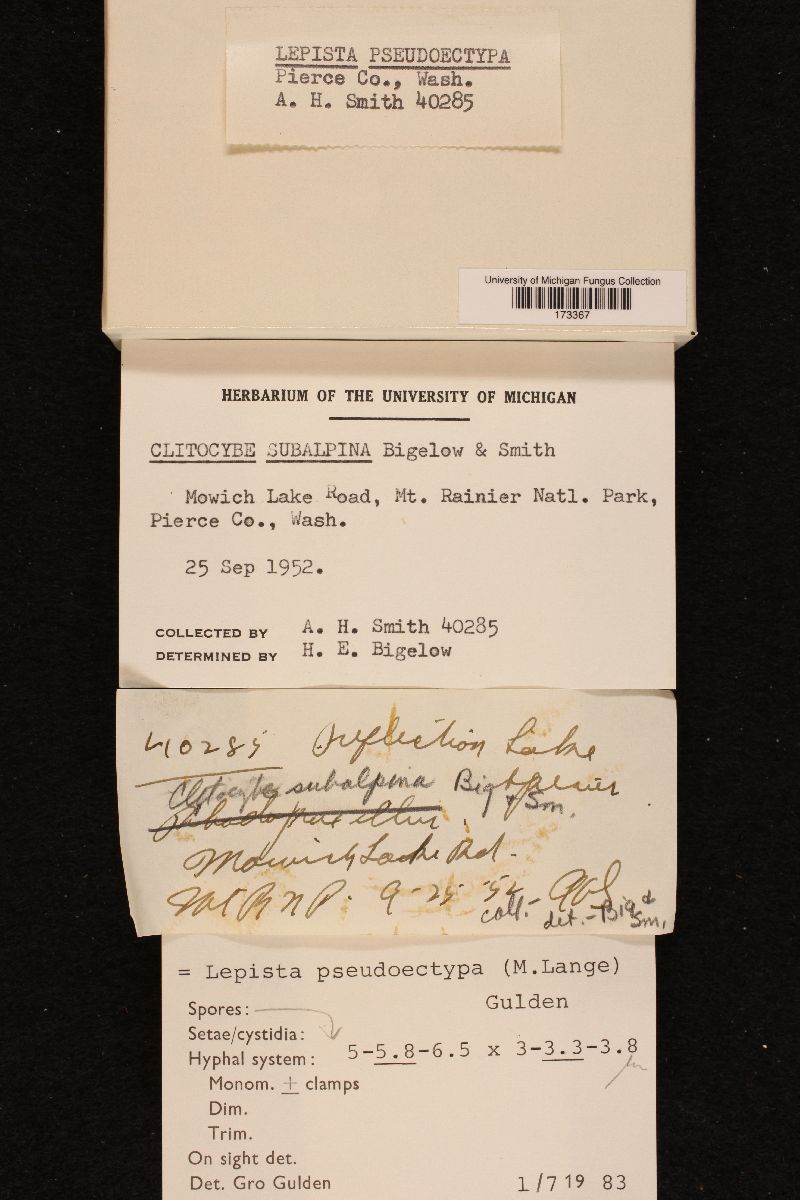 LEPISTA PSEUDOECTYPA
Pierce Co., Wash.
A. H. Smith 40285
University of Michigan Fungus Collection
173367
HERBARIUM OF THE UNIVERSITY OF MICHIGAN
CLITOCYBE SUBALPINA Bigelow & Smith
Mowich Lake Road, Mt. Rainier Natl. Park,
Pierce Co., Wash.
25 Sep 1952.
COLLECTED BY A. H. Smith 40285
DETERMINED BY H. E. Bigelow
40285 Reflection Lake
Clitocybe subalpina Big & Sm.
Mowich Lake Rd.
Mt R N P. 9-25-52
coll.- AHS
det.- Big & Sm.
= Lepista pseudoectypa (M.Lange)
Gulden
Spores:
Setae/cystidia:
Hyphal system: 5-5.8-6.5 x 3-3.3-3.8
Monom. ± clamps
Dim.
Trim.
On sight det.
Det. Gro Gulden 1/7 19 83